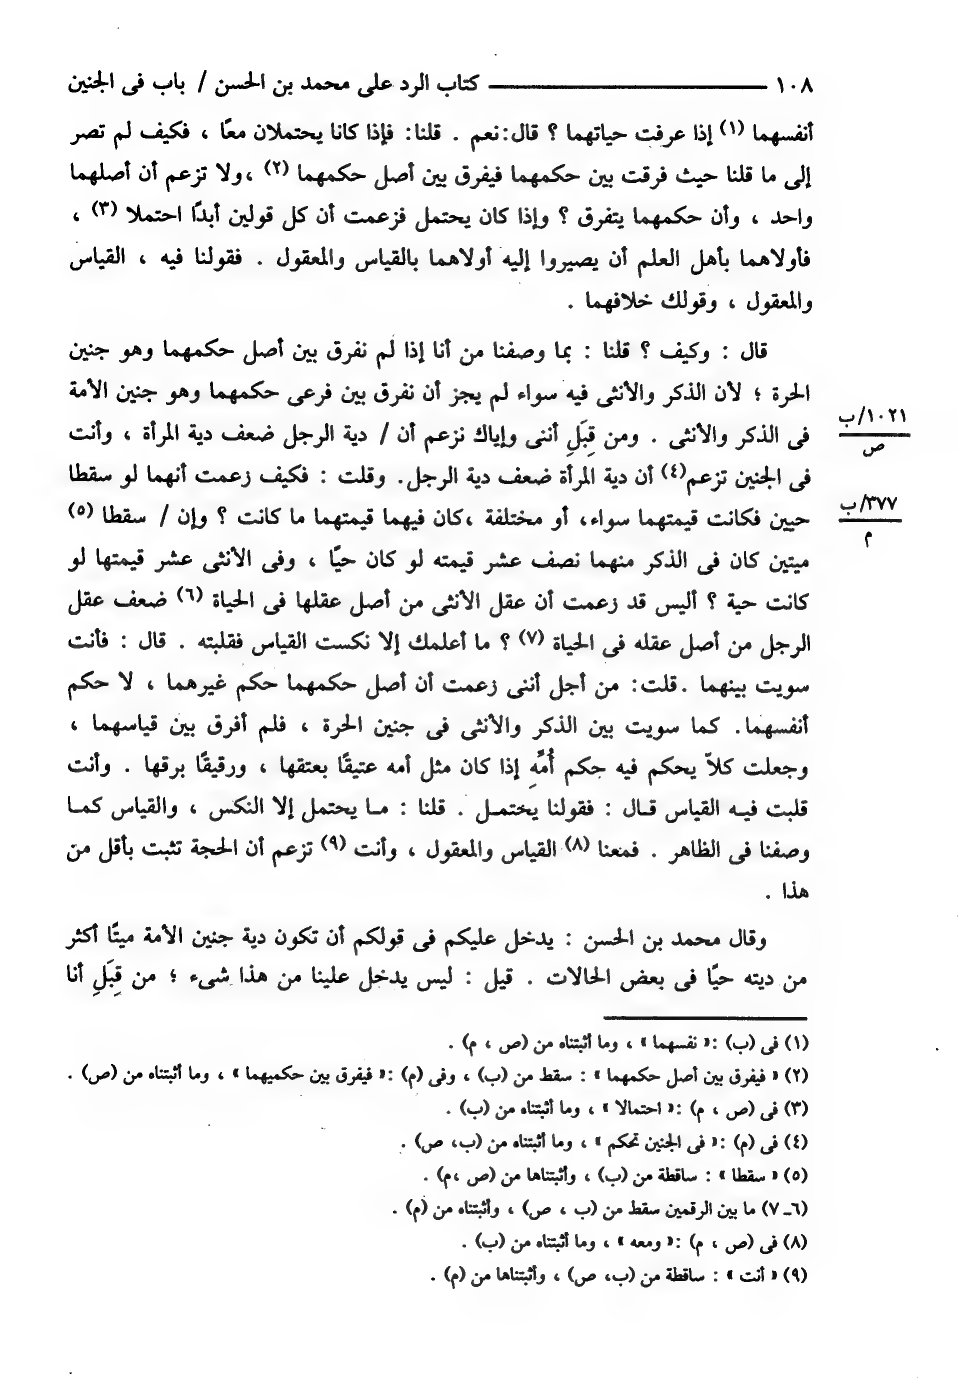 ١٠٨ ــــــــــــــــ كتاب الرد على محمد بن الحسن / باب فى الجنين
أنفسهما (١) إذا عرفت حياتهما ؟ قال:نعم . قلنا: فإذا كانا يحتملان معًا ، فكيف لم تصر
إلى ما قلنا حيث فرقت بين حكمهما فيفرق بين أصل حكمهما (٢) ،ولا تزعم أن أصلهما
واحد ، وأن حكمهما يتفرق ؟ وإذا كان يحتمل فزعمت أن كل قولين أبدًا احتملا (٣) ،
فأولاهما بأهل العلم أن يصيروا إليه أولاهما بالقياس والمعقول . فقولنا فيه ، القياس
والمعقول ، وقولك خلافهما .
قال : وكيف ؟ قلنا : بما وصفنا من أنا إذا لم نفرق بين أصل حكمهما وهو جنين
الحرة ؛ لأن الذكر والأنثى فيه سواء لم يجز أن نفرق بين فرعى حكمهما وهو جنين الأمة
فى الذكر والأنثى . ومن قِبَلِ أننى وإياك نزعم أن / دية الرجل ضعف دية المرأة ، وأنت
فى الجنين تزعم(٤) أن دية المرأة ضعف دية الرجل. وقلت : فكيف زعمت أنهما لو سقطا
حيين فكانت قيمتهما سواء، أو مختلفة ،كان فيهما قيمتهما ما كانت ؟ وإن / سقطا (٥)
ميتين كان فى الذكر منهما نصف عشر قيمته لو كان حيًا ، وفى الأنثى عشر قيمتها لو
كانت حية ؟ أليس قد زعمت أن عقل الأنثى من أصل عقلها فى الحياة (٦) ضعف عقل
الرجل من أصل عقله فى الحياة (٧) ؟ ما أعلمك إلا نكست القياس فقلبته . قال : فأنت
سويت بينهما .قلت: من أجل أننى زعمت أن أصل حكمهما حكم غيرهما ، لا حكم
أنفسهما. كما سويت بين الذكر والأنثى فى جنين الحرة ، فلم أفرق بين قياسهما ،
وجعلت كلاً يحكم فيه حكم أُمِّهِ إذا كان مثل أمه عتيقًا بعتقها ، ورقيقًا برقها . وأنت
قلبت فيه القياس قال : فقولنا يحتمل . قلنا : ما يحتمل إلا النكس ، والقياس كما
وصفنا فى الظاهر . فمعنا (٨) القياس والمعقول ، وأنت (٩) تزعم أن الحجة تثبت بأقل من
هذا .
وقال محمد بن الحسن : يدخل عليكم فى قولكم أن تكون دية جنين الأمة ميتًا أكثر
من ديته حيًا فى بعض الحالات . قيل : ليس يدخل علينا من هذا شىء ؛ من قِبَلِ أنا
١٠٢١/ب
ص
٣٧٧/ب
م
(١) فى (ب) :« نفسهما » ، وما أثبتناه من (ص ، م) .
(٢) « فيفرق بين أصل حكمهما » : سقط من (ب) ، وفى (م) :« فيفرق بين حكميهما » ، وما أثبتناه من (ص) .
(٣) فى (ص ، م) :« احتمالا » ، وما أثبتناه من (ب) .
(٤) فى (م) :« فى الجنين تحكم » ، وما أثبتناه من (ب، ص) .
(٥) « سقطا » : ساقطة من (ب) ، وأثبتناها من (ص ،م) .
(٦ـ ٧) ما بين الرقمين سقط من (ب ، ص) ، وأثبتناه من (م) .
(٨) فى (ص ، م) :« ومعه » ، وما أثبتناه من (ب) .
(٩) « أنت » : ساقطة من (ب، ص) ، وأثبتناها من (م) .